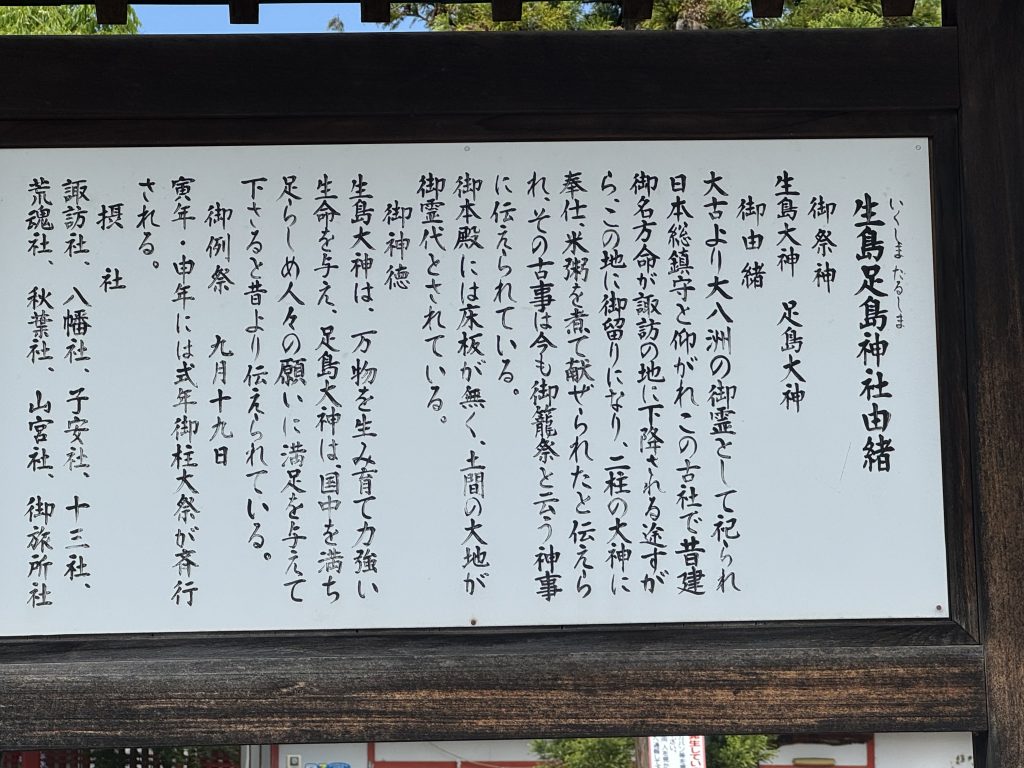 いくしまたるしま
生島足島神社由緒
御祭神
生島大神　足島大神
御由緒
大古より大八洲の御霊として祀られ
日本総鎮守と仰がれこの古社で昔建
御名方命が諏訪の地に下降される途すが
ら、この地に御留りになり、二柱の大神に
奉仕、米粥を煮て献ぜられたと伝えら
れ、その古事は今も御籠祭と云う神事
に伝えられている。
御本殿には床板が無く、土間の大地が
御霊代とされている。
御神徳
生島大神は、万物を生み育て力強い
生命を与え、足島大神は、国中を満ち
足らしめ人々の願いに満足を与えて
下さると昔より伝えられている。
御例祭　九月十九日
寅年・申年には式年御柱大祭が斉行
される。
摂社
諏訪社、八幡社、子安社、十三社、
荒魂社、秋葉社、山宮社、御旅所社